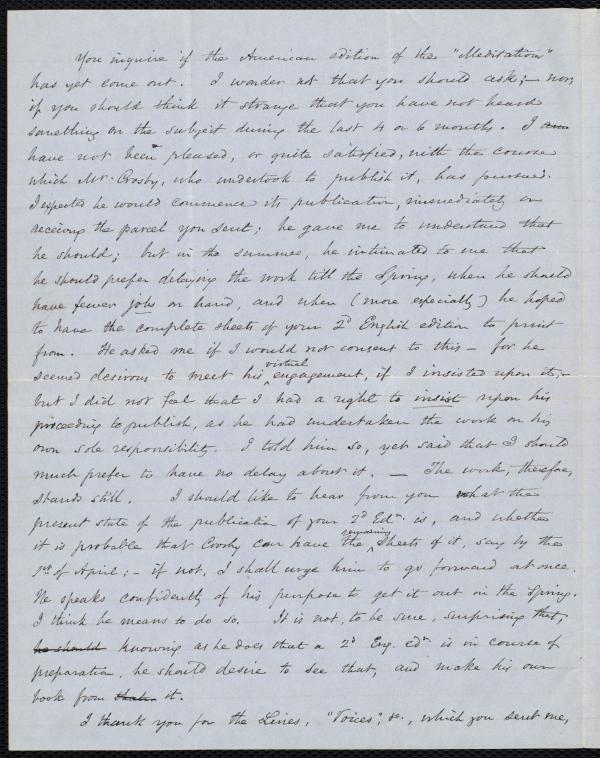 You inquire if the American edition of the "Meditations"
has yet come out. I wonder not that you should ask; - nor,
if you should think it strange that you have not heard
something on the subject during the last 4 or 6 months. I am
have not been pleased, or quite satisfied, with the course
which Mr. Crosby, who undertook to publish it, has pursued.
I expected he would commence its publication, immediately on
receiving the parcel you sent; he gave me to understand that
he should; but in the summer, he intimated to me that
he should prefer delaying the work till the Spring, when he should
have fewer jobs on hand, and when (more especially) he hoped
to have the complete sheets of your 2d English edition to print
from. He asked me if I would not consent to this - for he
seemed desirous to meet his virtual engagement, if I insisted upon it; -
but I did not feel that I had a right to insist upon his
proceeding to publish, as he had undertaken the work on his
own sole responsibility. I told him so, yet said that I should
much prefer to have no delay about it. — The work, therefore,
stands still. I should like to hear from you what the
present state of the publication of your 2d Edn. is, and whether
it is probable that Crosby can have the remaining sheets of it, say by the
1st of April; - if not, I shall urge him to go forward at once.
He speaks confidently of his purpose to get it out in the Spring.
I think he means to do so. It is not, to be sure, surprising that,
he should knowing as he does that a 2d Eng. Edn is in course of
preparation, he should desire to see that, and make his own
book from that it.
I thank you for the Lines, "Voices", &c., which you sent me,